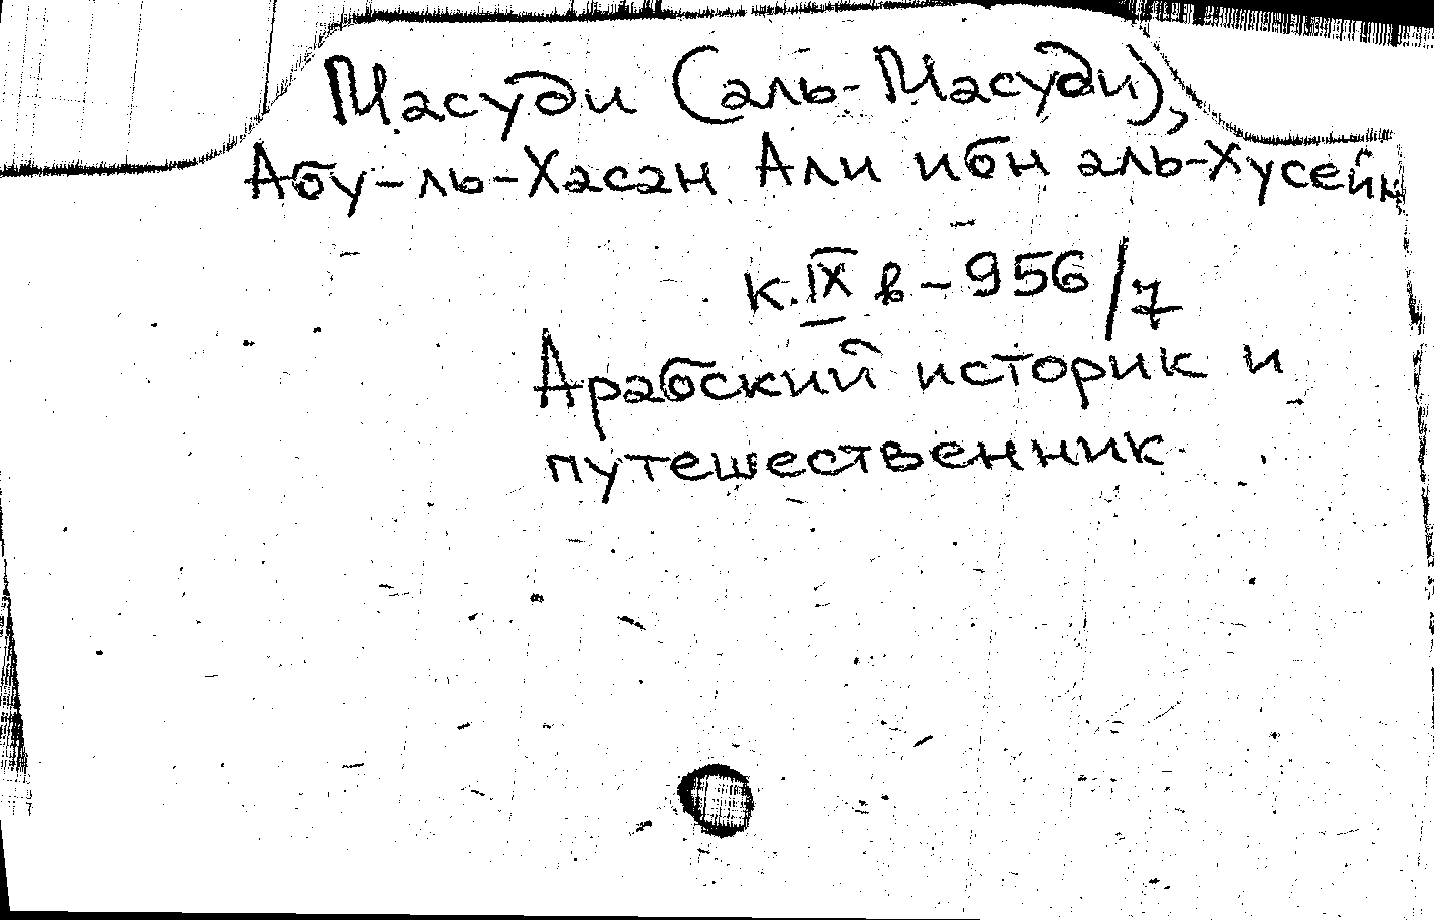 Масуди (аль-Масуди),
Абу-ль-Хасан Али ибн аль-Хусейн
к. IX в - 956/7
Арабский историк и
путешественник